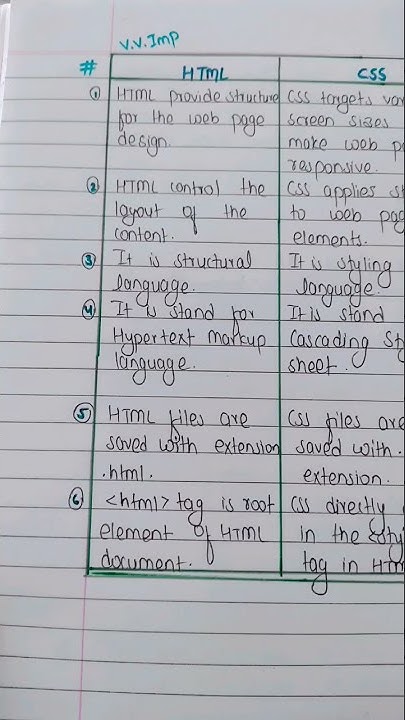 V.V.Imp
# HTML CSS
① HTML provide structure
for the web page
design.
CSS targets
screen sizes
make web
responsive.
② HTML control the
layout of the
content.
CSS applies
to web
elements.
③ It is structural
language.
It is styling
language.
④ It is stand for
Hypertext markup
language.
It is stand
Cascading
sheet.
⑤ HTML files are
saved with extension
.html.
CSS files are
saved with .
extension.
⑥ <html> tag is root
element of HTML
document.
CSS directly
in the
tag in